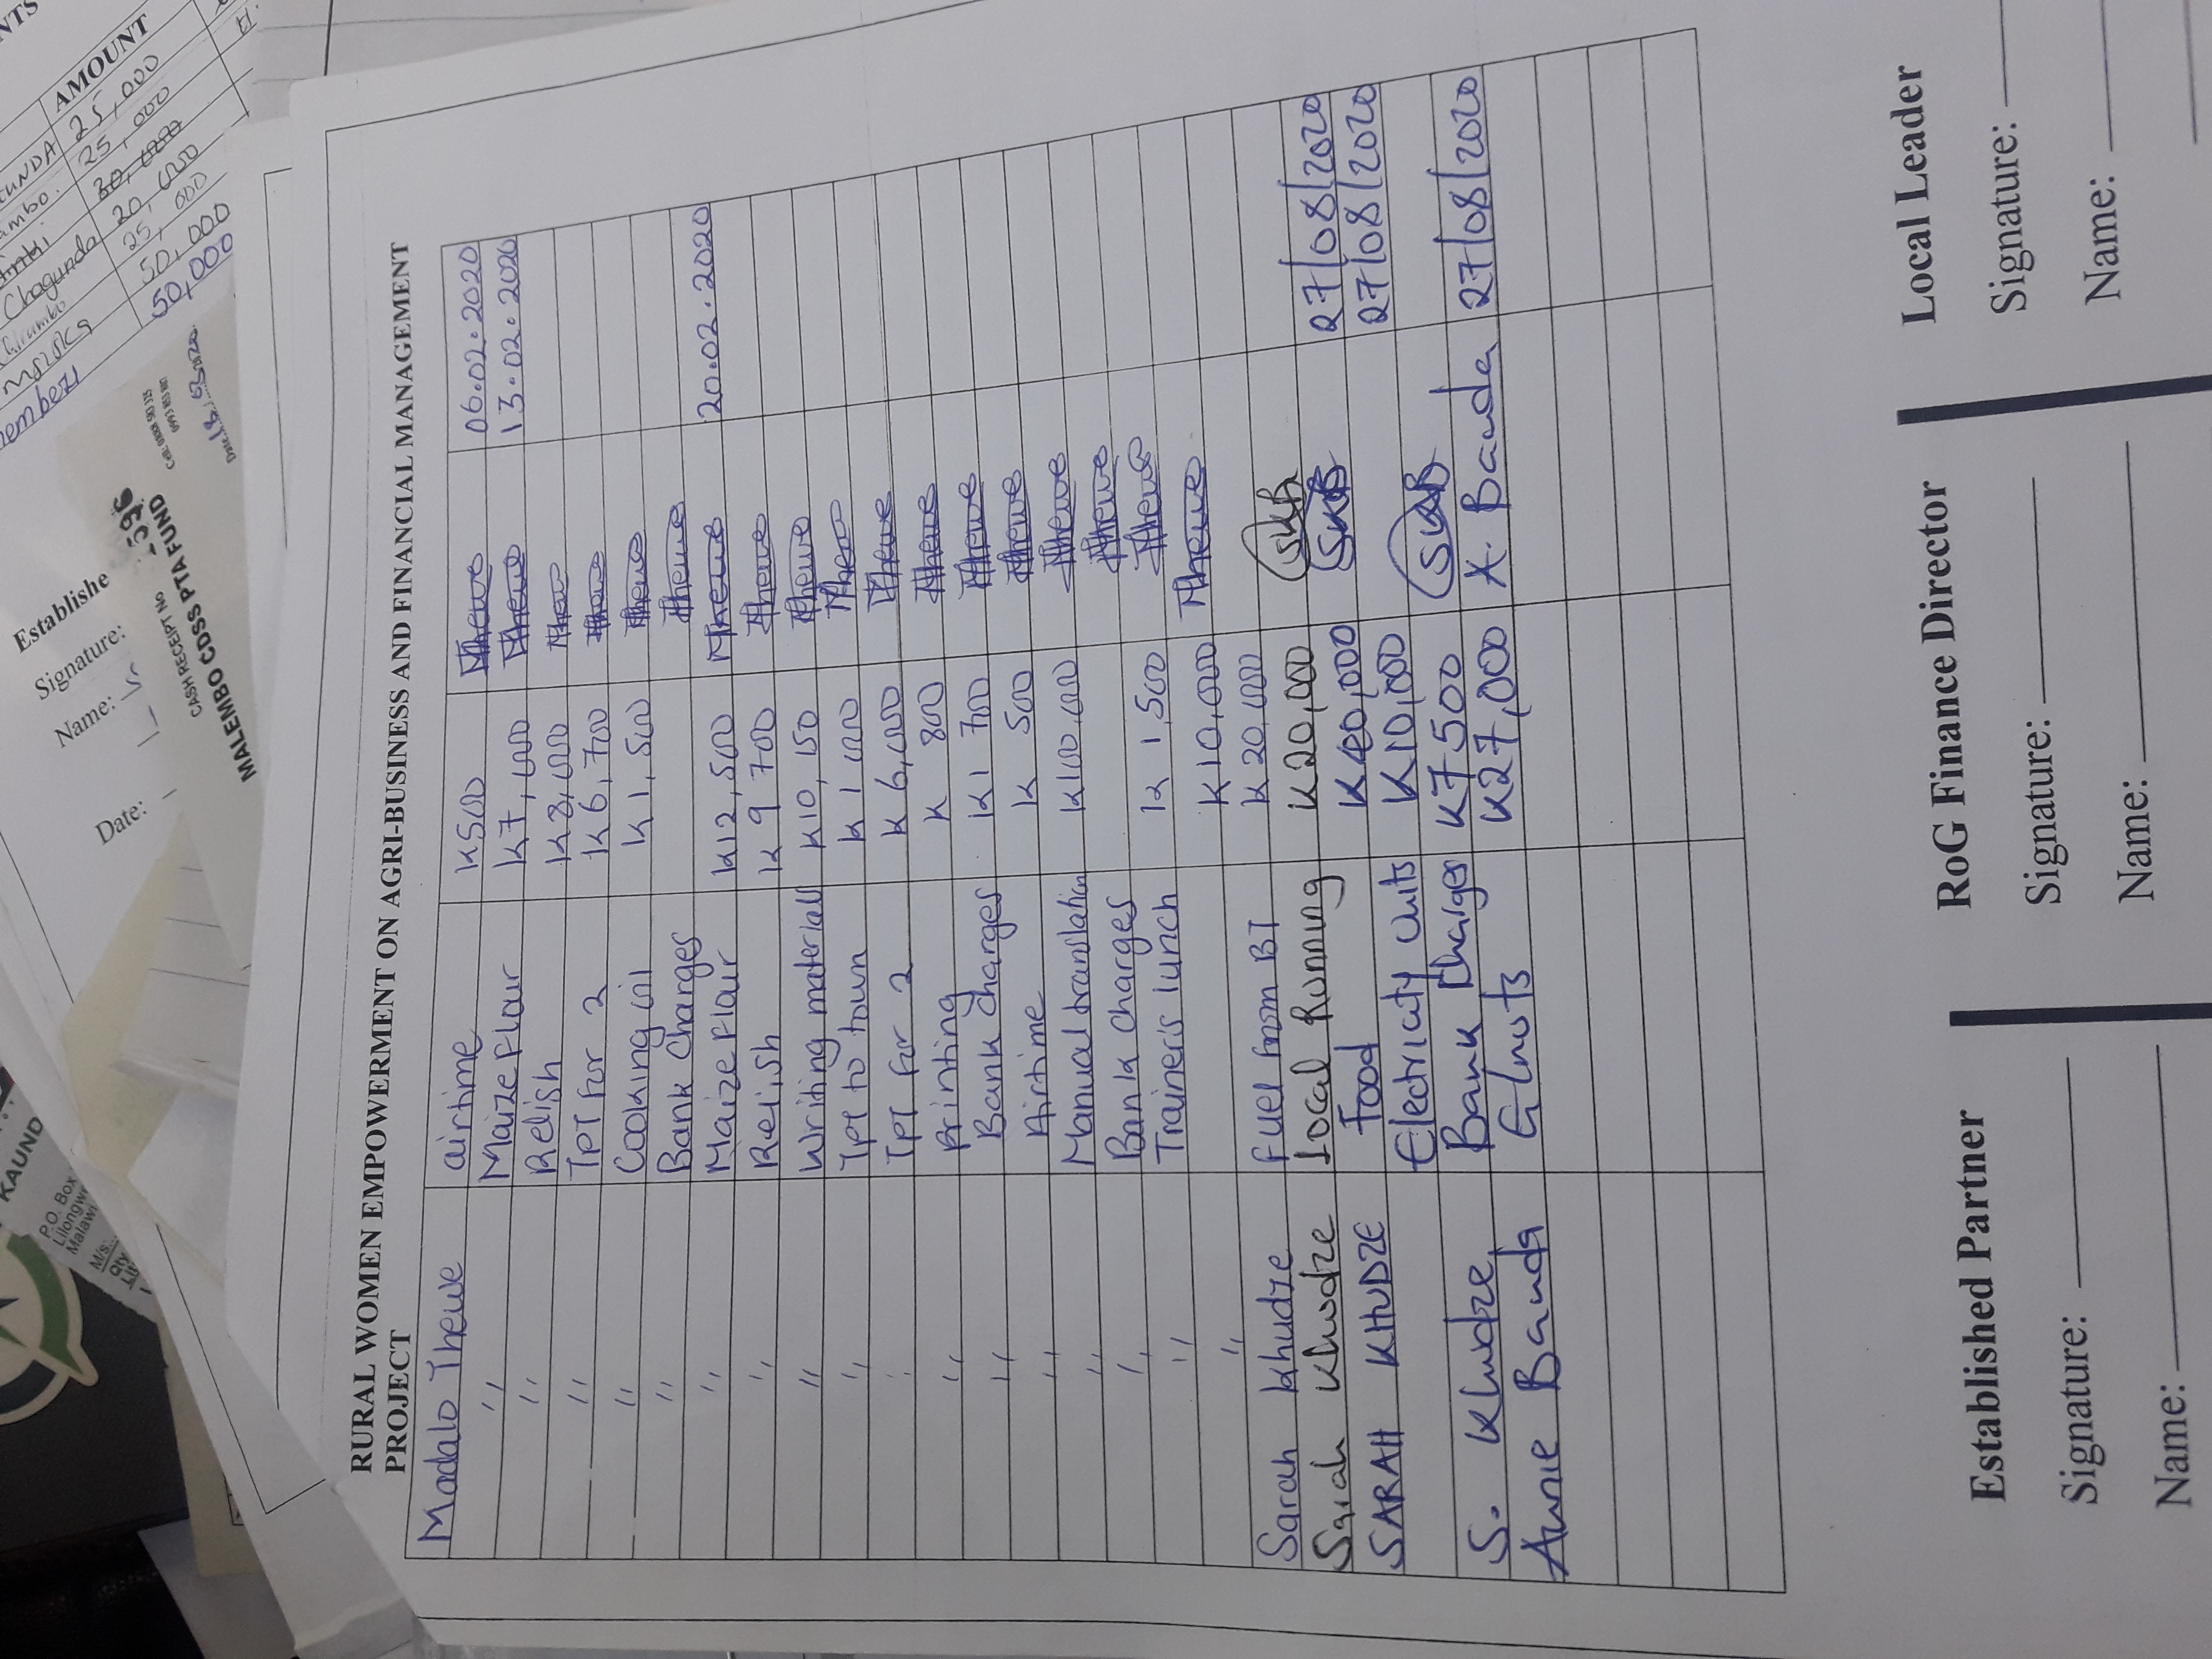 RURAL WOMEN EMPOWERMENT ON AGRI-BUSINESS AND FINANCIAL MANAGEMENT
PROJECT
Madalo Thewe airtime K500 Thewe 06.02.2020
" Maize Flour K7,000 Thewe 13.02.2020
" Relish K8,000 Thewe
" TPT for 2 K6,700 Thewe
" Cooking oil K1,500 Thewe
" Bank Charges Thewe
" Maize Flour K12,500 Thewe 20.02.2020
" Relish K9 700 Thewe
" Writing materials K10,150 Thewe
" TPT to town K1 000 Thewe
" TPT for 2 K6,000 Thewe
" Printing K 800 Thewe
" Bank Charges K1 700 Thewe
" Airtime K 500 Thewe
" Manual translation K100,000 Thewe
" Bank charges Thewe
" Trainer's lunch K1,500 Thewe
" K10,000 Thewe
Sarah Khudze Fuel from BT K20,000
Sarah Khudze Local Running K20,000 SKB 27/08/2020
SARAH KHUDZE Food K40,000 SKB 27/08/2020
Electricity Units K10,000
S. Khudze Bank Charges K7500 SKB
Annie Banda G/nuts K27,000 A. Banda 27/08/2020
Established Partner RoG Finance Director Local Leader
Signature: Signature: Signature:
Name: Name: Name:
AMOUNT
25,000
25,000
30,000
Chagunda 20,000
25,000
50,000
50,000
Establishe
Signature:
Name:
Date:
CASH RECEIPT NO
MALEMBO CDSS PTA FUND
KAUND
P.O. Box
Lilongwe
Malawi
M/s
Qty